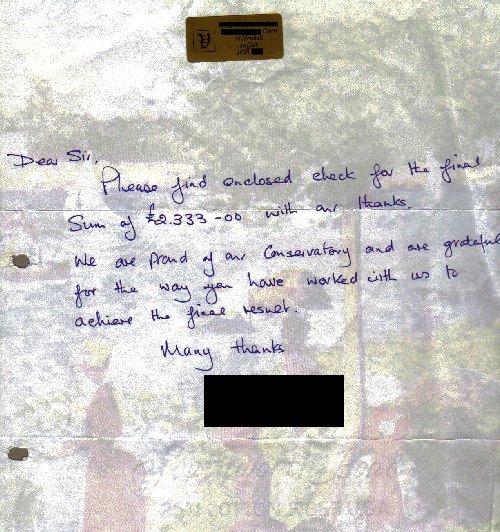 Close
Mildenhall
Suffolk
IP28
Dear Sir,
Please find enclosed check for the final
Sum of £2.333-00 with our thanks.
We are proud of our Conservatory and are grateful
for the way you have worked with us to
achieve the final result.
Many thanks